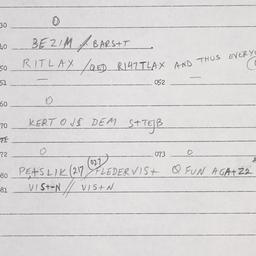 30 0
40 BEZIM // BARS+T.
50 RITLAX /QED R147TLAX AND THUS EVERY
51 — 052 —
60 0
70 KERT OJS DEM S++EJB
71
72 0 073 0
80 PE+SLIK (217 (027) FLEDERVIS+ 0 FUN AGA+ZZ
81 VIS+-N // VIS+N